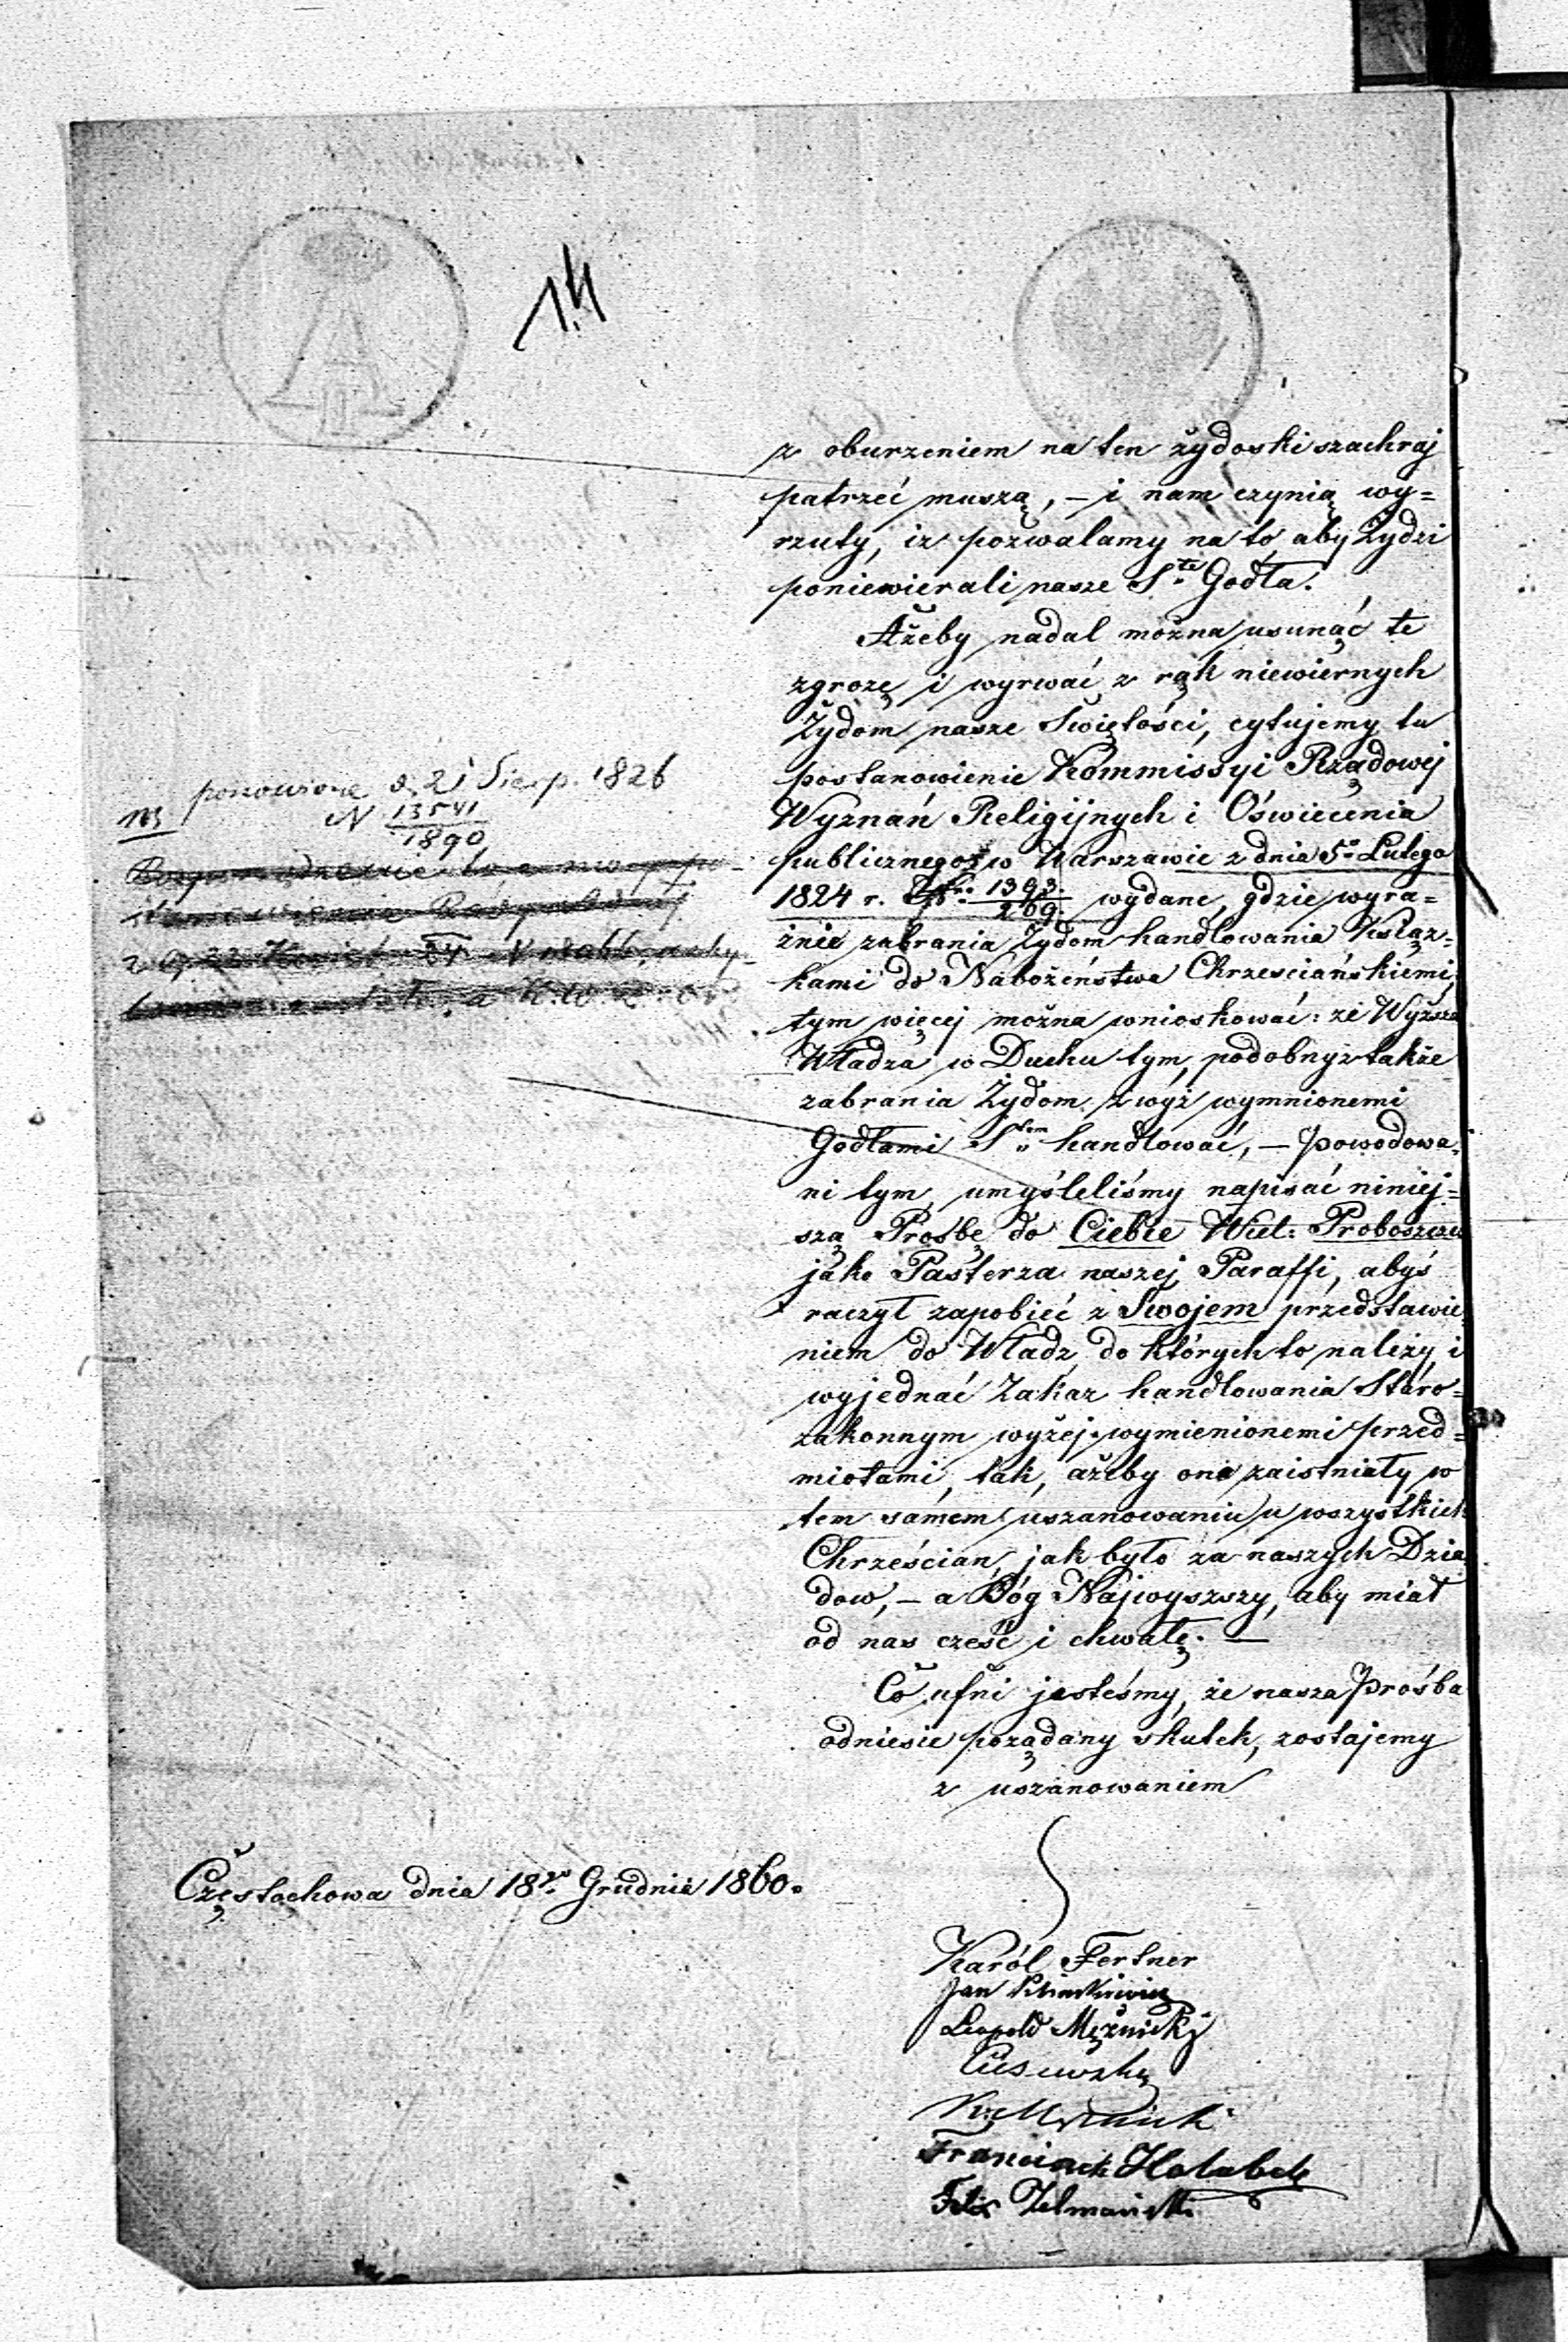 14
z oburzeniem na ten żydoski szachraj
patrzeć muszą, – i nam czynią wy=
rzuty, iż pozwalamy na to, aby Żydzi
poniewierali nasze S^te Godła.
Ażeby nadal można usunąć te
zgrozę i wyrwać z rąk niewiernych
Żydom nasze Świętości, cytujemy tu
postanowienie Kommissyi Rządowej
Wyznań Religijnych i Oświecenia
publicznego w Warszawie z dnia 5º Lutego
1824 r. 1393/269 wydane, gdzie wyra=
źnie zabrania Żydom handlowania Książ=
kami do Nabożeństwa Chrześciańskiemi,
tym więcej można wnioskować: że Wyższa
Władza w Duchu tym, podobnyż także
zabrania Żydom z wyż wymnionemi
Godłami S^tem handlować, – powodowa=
ni tym, umyśleliśmy napisać niniej=
szą Prośbę do Ciebie Wiel: Proboszczu
jako Pasterza naszej Paraffi, abyś
raczył zapobieć z Swojem przedstawie=
niem do Władz do których to należy, i
wyjednać Zakaz handlowania Staro=
zakonnym wyżej wymienionemi przed=
miotami, tak, ażeby one zaistniały w
tem samem uszanowaniu u wszystkich
Chrześcian, jak było za naszych Dzia=
dow, – a Bóg Najwyszszy, aby miał
od nas cześć i chwałę. —
Co ufni jesteśmy, że nasza Prośba
odniesie pożądany skutek, zostajemy
z uszanowaniem
ponowione d. 21 Sierp. 1826
N 13541/1890
Częstochowa dnia 18^go Grudnia 1860.
Karól Fertner
Jan Klimkiewicz
Leopold Mężnicki
Franciszek Holabek
Felix Zelmański